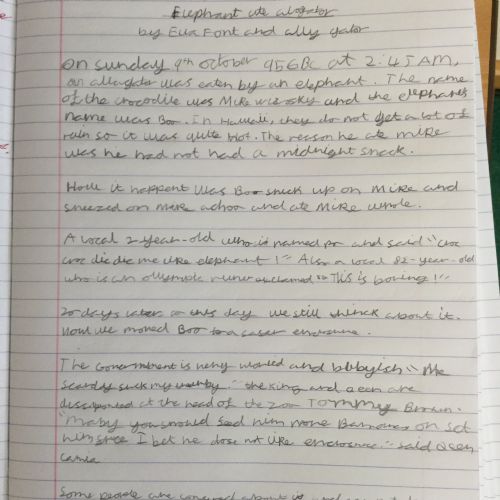 Elephant ate alogator
by Ella Font and ally gator
on sunday 9th october 956BC at 2:45AM,
an allagator was eaten by an elephant. The name
of the crocodile was Mike and the elephants
name was Boo. In Hawaii, they do not get a lot of
rain so it was quite hot. The reason he ate mike
was he had not had a midnight snack.
How it happent was Boo snuck up on Mike and
sneezed on Mike achoo and ate Mike whole.
A local 2-year-old who is named and said "Croc
croc die die me like elephant!" Also a local 82-year-old
who is an ollympic runer exclamed "This is boring!"
20 days later on this day we still thinck about it.
Now we moved Boo to a enclosure.
The Government is very worried and "Me
the king and qeen are
at the head of the zoo Tommy Brown.
"Maby you should feed him more Bananas on set
I bet he does not like enclosure." said Qeen
Some people are about